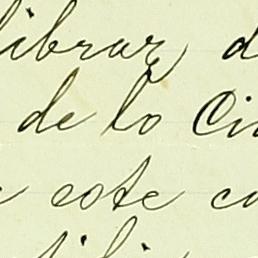 librar, d
de lo Ci
este co